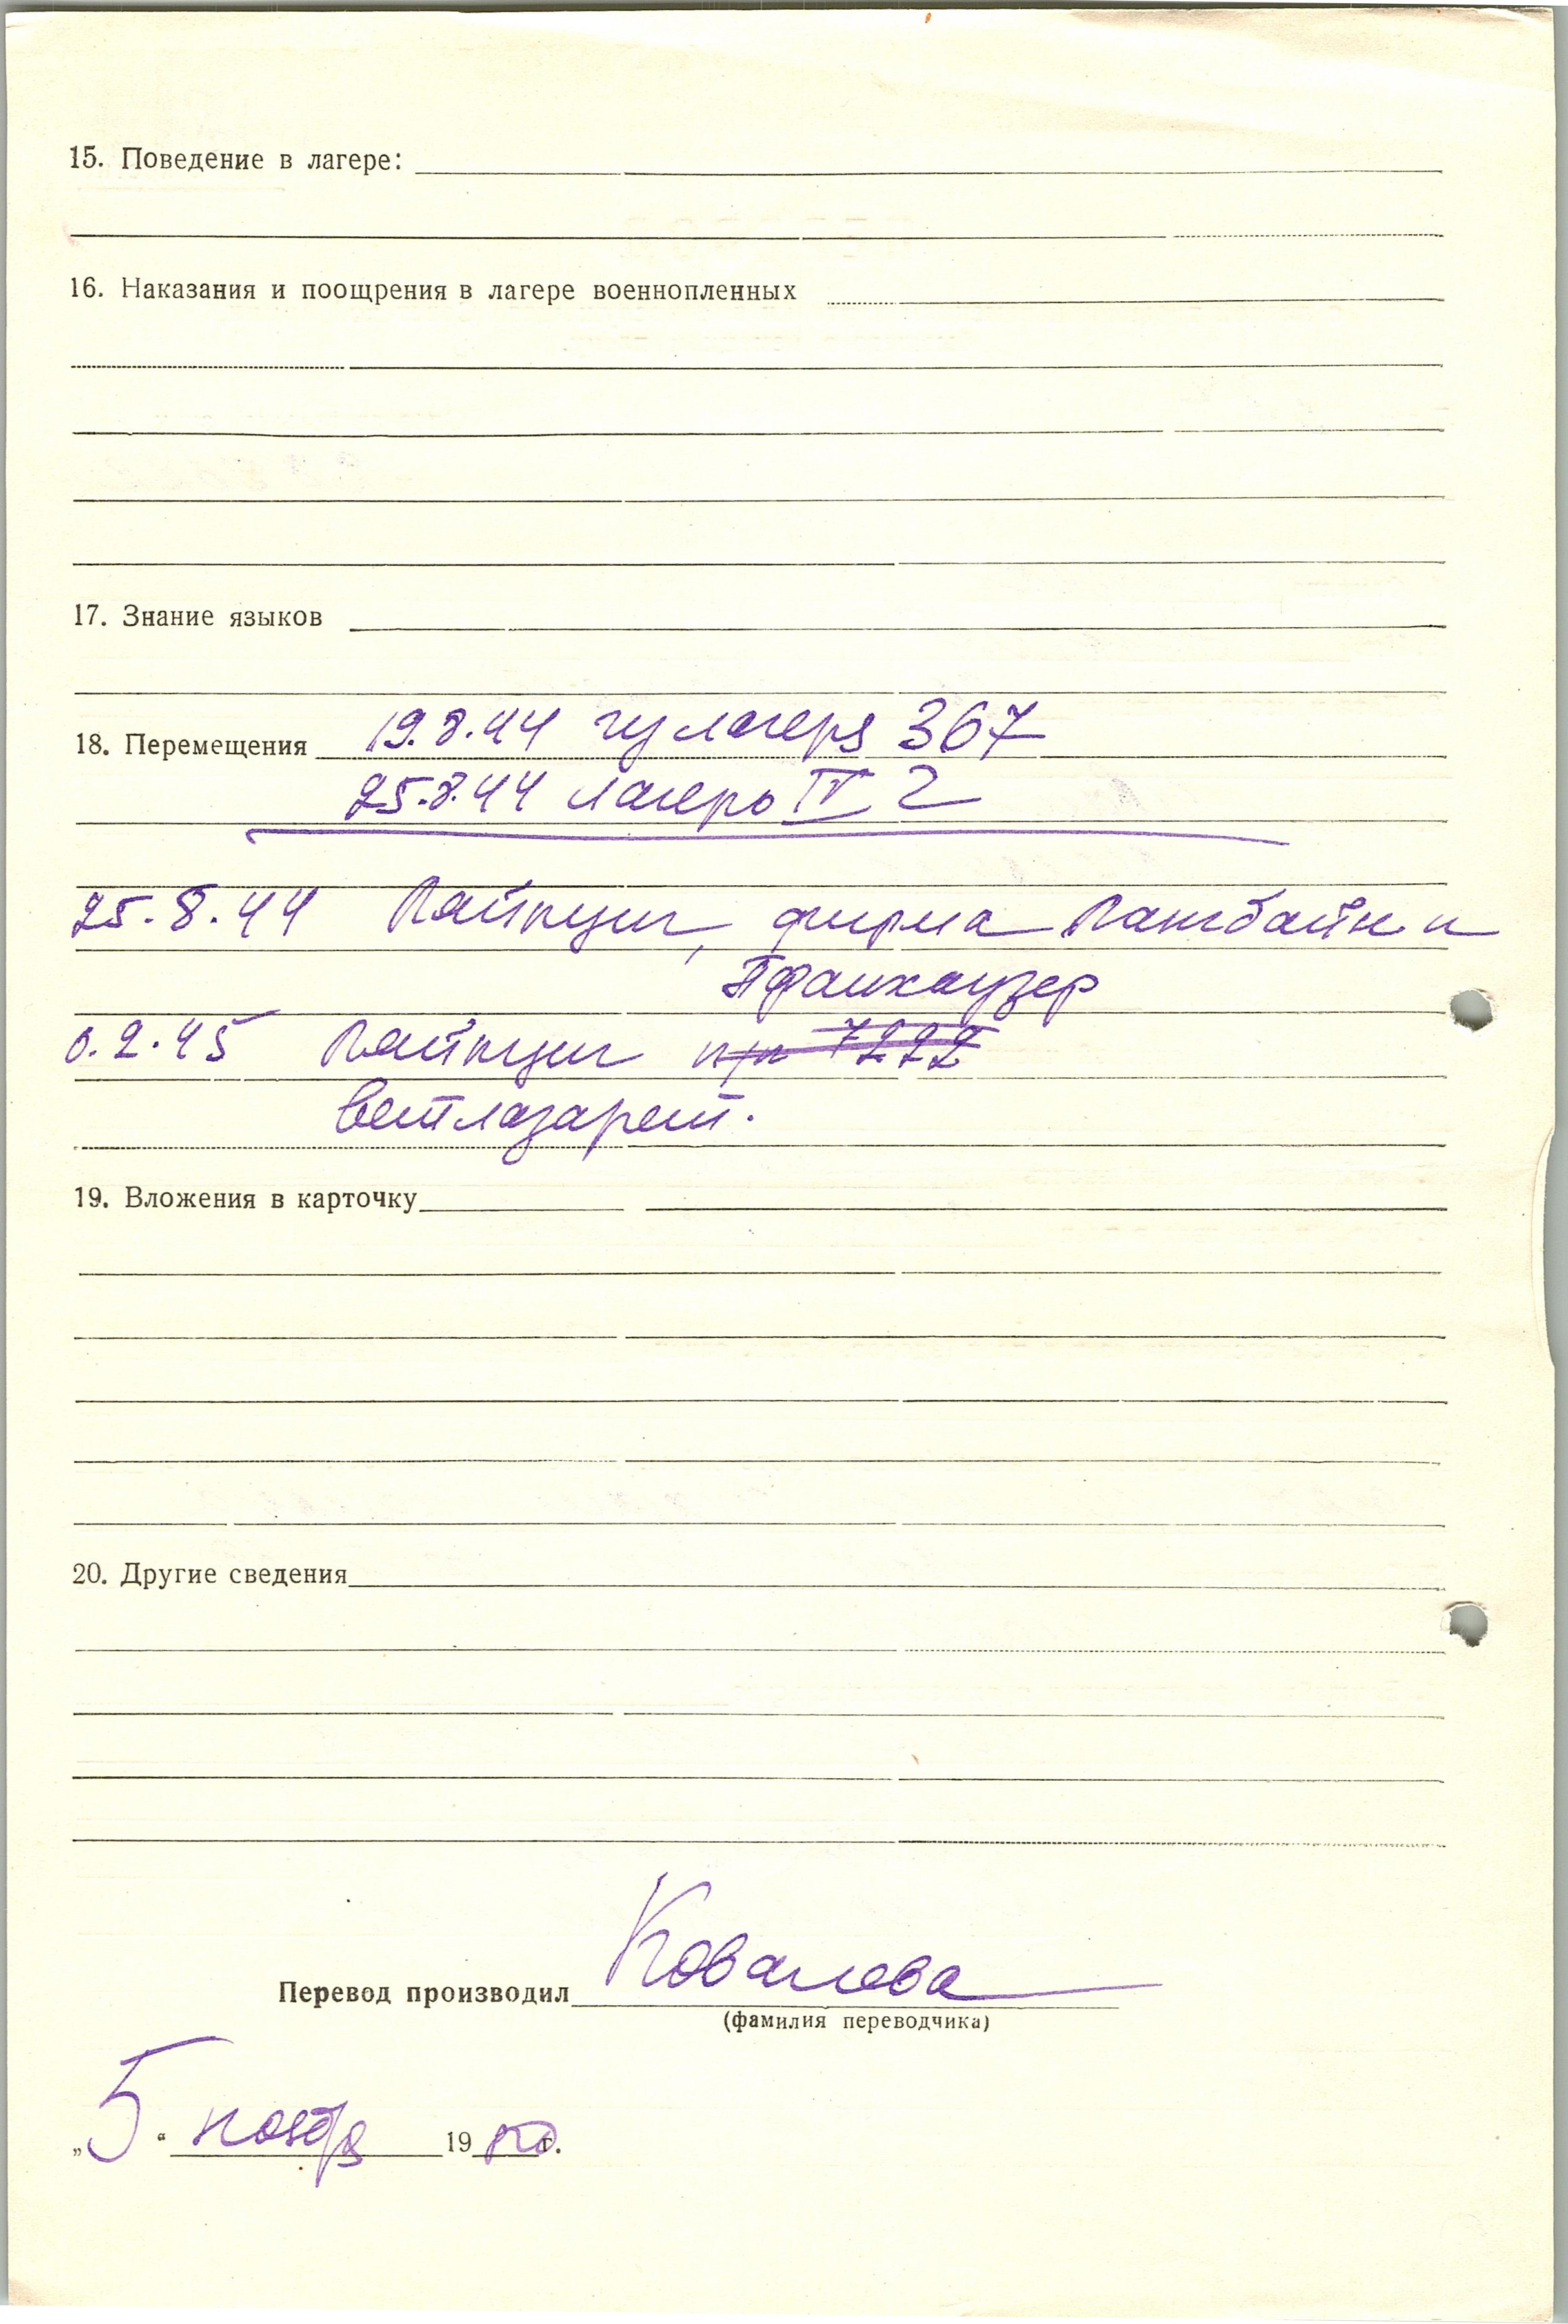 15. Поведение в лагере:
16. Наказания и поощрения в лагере военнопленных
17. Знание языков
18. Перемещения 19.8.44 из лагеря 367
25.8.44 лагерь IV Г
25.8.44 Лайпциг, фирма Лангбайн и
Пфанхаузер
6.2.45 Лайпциг п/п 7222
Ветлазарет.
19. Вложения в карточку
20. Другие сведения
Перевод производил Ковалева
(фамилия переводчика)
„5“ ноября 1950 г.